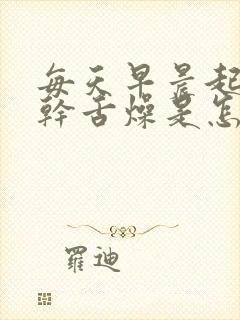 每天早晨起
幹舌燥是怎
羅迪